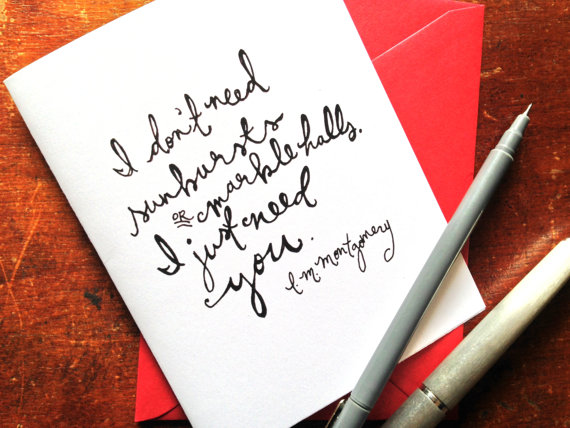 I don't need
sunbursts
OR marble halls.
I just need
you.
L.M. Montgomery